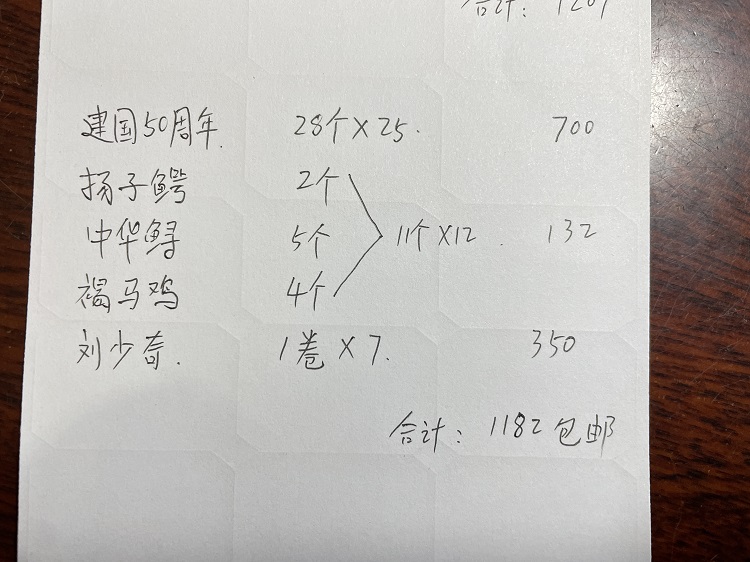 合计: 1201
建国50周年. 28个×25. 700
扬子鳄 2个
中华鲟 5个 11个×12. 132
褐马鸡 4个
刘少奇. 1卷×7. 350
合计: 1182包邮